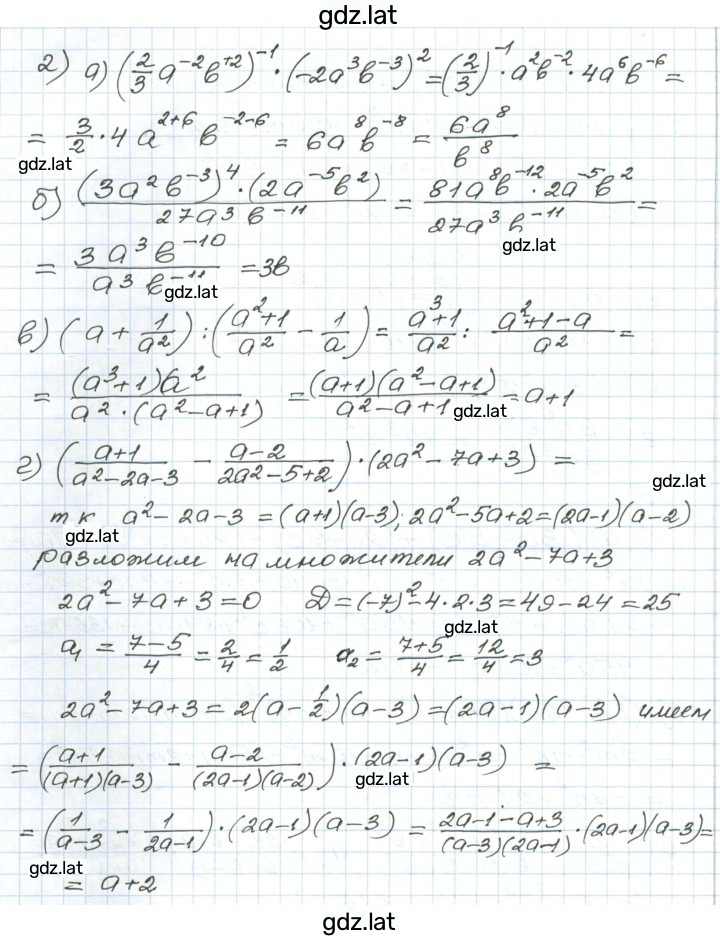 gdz.lat
2) а) (2/3 a⁻²b⁺²)⁻¹ · (-2a³b⁻³)² = (2/3)⁻¹ · a²b⁻² · 4a⁶b⁻⁶ =
= 3/2 · 4 a²⁺⁶ b⁻²⁻⁶ = 6a⁸b⁻⁸ = 6a⁸/b⁸
gdz.lat
б) ((3a²b⁻³)⁴ · (2a⁻⁵b²))/(27a³b⁻¹¹) = (81a⁸b⁻¹² · 2a⁻⁵b²)/(27a³b⁻¹¹) =
gdz.lat
= (3a³b⁻¹⁰)/(a³b⁻¹¹) = 3b
gdz.lat
в) (a + 1/a²) : ((a²+1)/a² - 1/a) = (a³+1)/a² : (a²+1-a)/a² =
= ((a³+1)a²)/(a² · (a²-a+1)) = ((a+1)(a²-a+1))/(a²-a+1) = a+1
gdz.lat
г) ((a+1)/(a²-2a-3) - (a-2)/(2a²-5+2)) · (2a²-7a+3) =
gdz.lat
т к a²-2a-3 = (a+1)(a-3); 2a²-5a+2 = (2a-1)(a-2)
gdz.lat
разложим на множители 2a²-7a+3
2a²-7a+3=0 Д=(-7)²-4·2·3=49-24=25
a₁ = (7-5)/4 = 2/4 = 1/2 a₂ = (7+5)/4 = 12/4 = 3
2a²-7a+3 = 2(a-1/2)(a-3) = (2a-1)(a-3) имеем
= ((a+1)/((a+1)(a-3)) - (a-2)/((2a-1)(a-2))) · (2a-1)(a-3) =
gdz.lat
= (1/(a-3) - 1/(2a-1)) · (2a-1)(a-3) = (2a-1-a+3)/((a-3)(2a-1)) · (2a-1)(a-3) =
gdz.lat
= a+2
gdz.lat